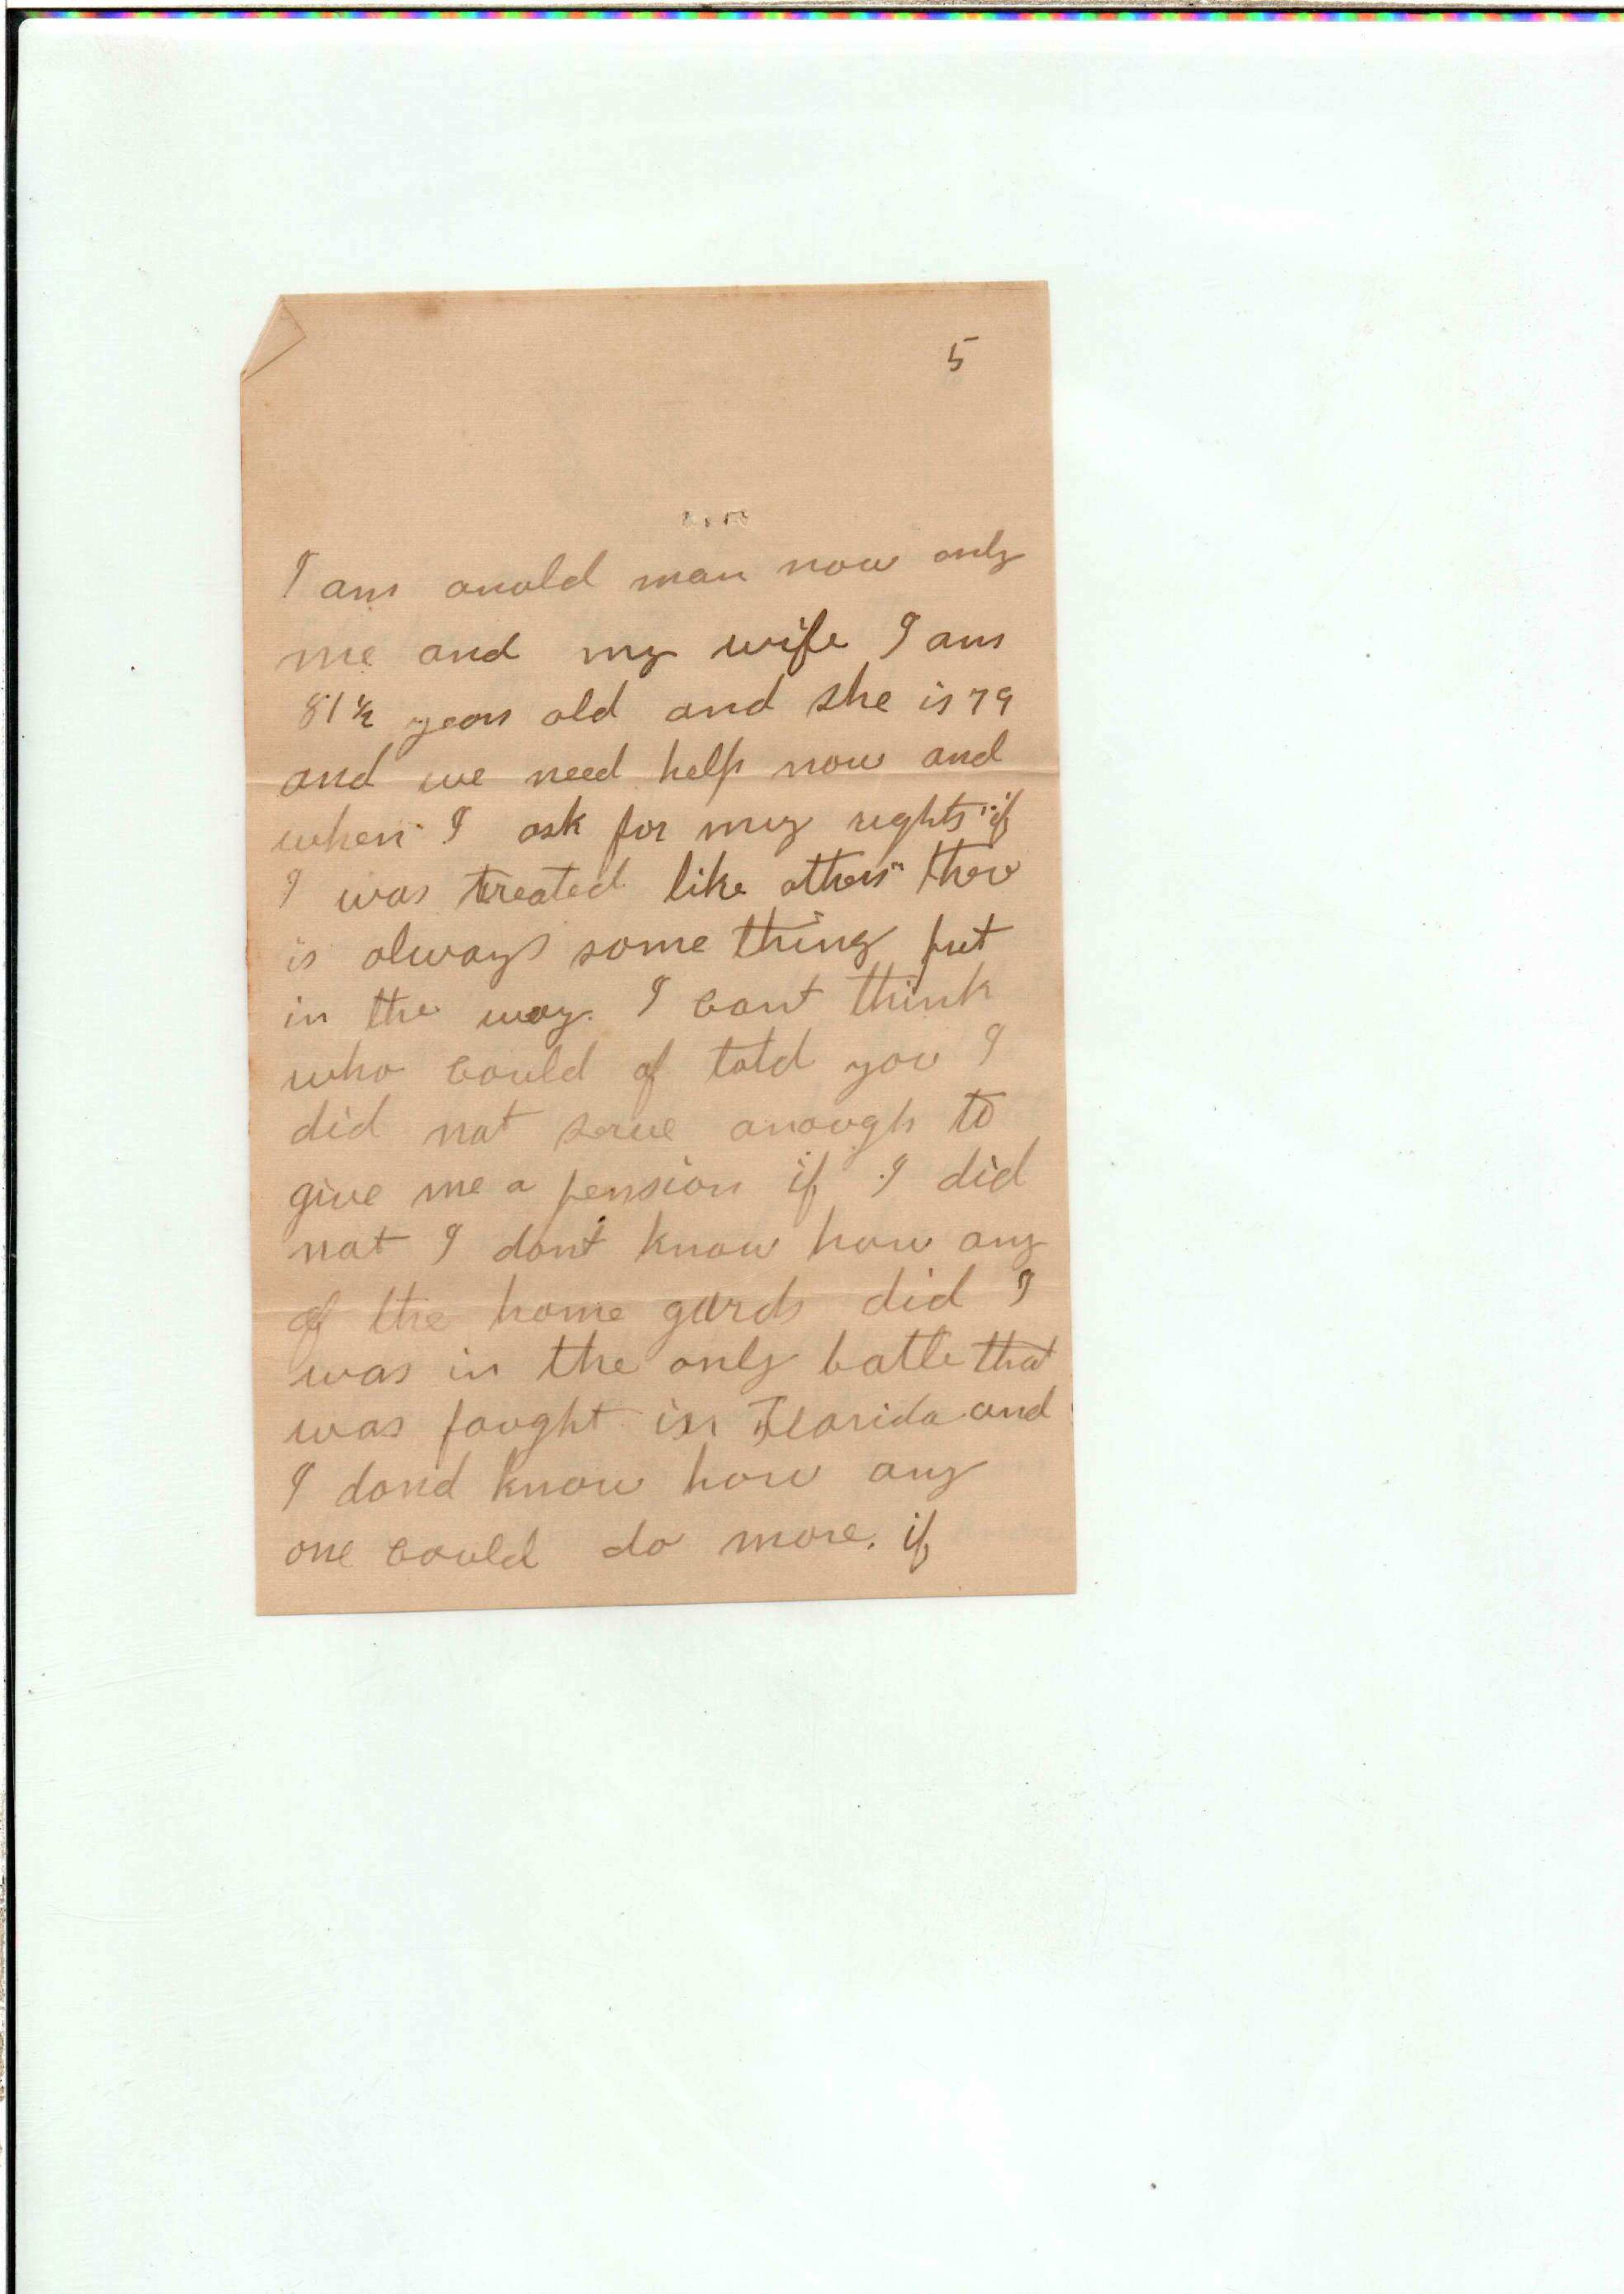 5
I am anold man now only
me and my wife I am
81½ years old and she is 79
and we need help now and
when I ask for my rights "if
I was treated like others" ther
is always some thing put
in the way. I cant think
who could of told you I
did not serve anough to
give me a pension if I did
not I dont know how any
of the home gards did I
was in the only batle that
was fought in Florida and
I dond know how any
one could do more. if